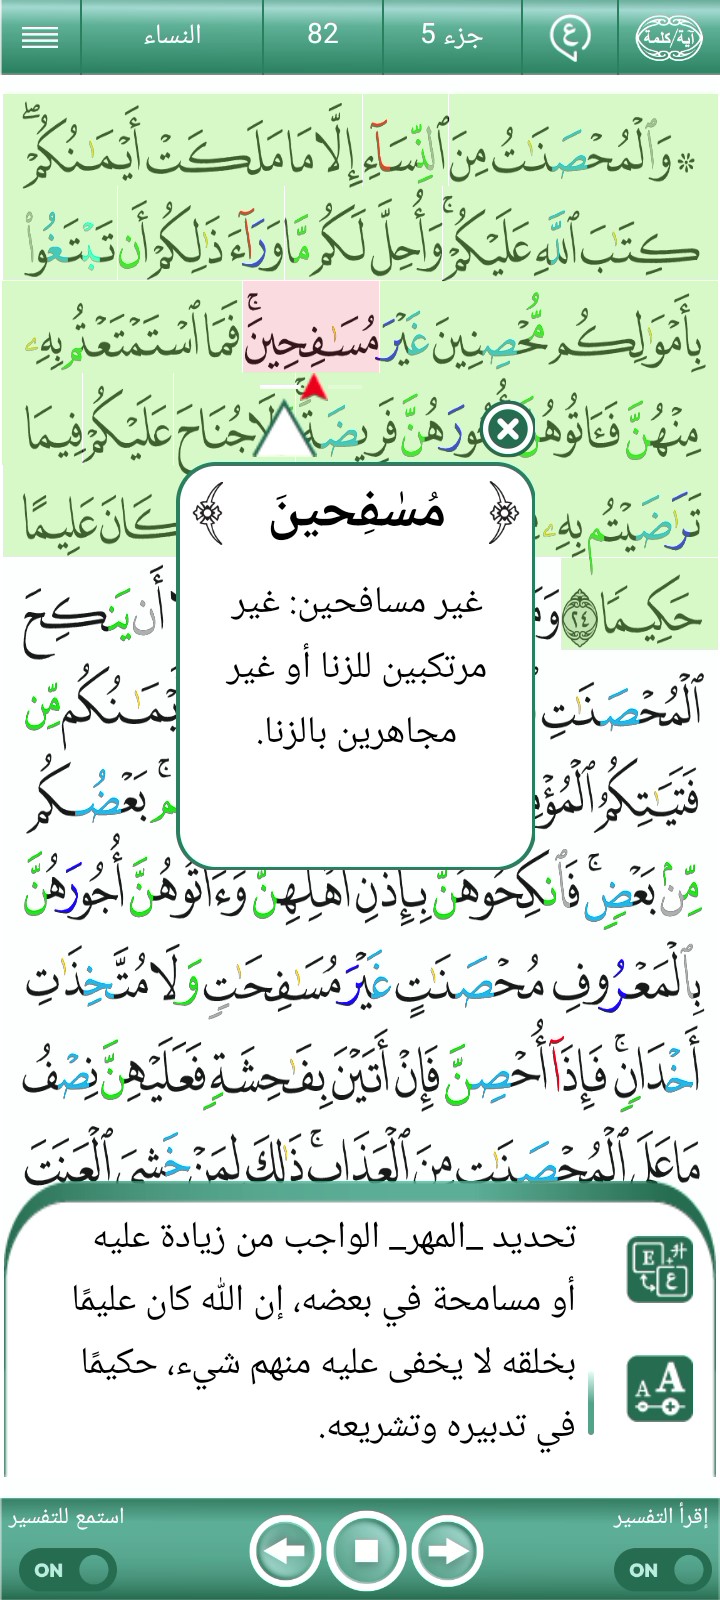 النساء
82
جزء 5
آية/كلمة
۞ وَٱلْمُحْصَنَٰتُ مِنَ ٱلنِّسَآءِ إِلَّا مَا مَلَكَتْ أَيْمَٰنُكُمْ ۖ
كِتَٰبَ ٱللَّهِ عَلَيْكُمْ ۚ وَأُحِلَّ لَكُم مَّا وَرَآءَ ذَٰلِكُمْ أَن تَبْتَغُوا۟
بِأَمْوَٰلِكُم مُّحْصِنِينَ غَيْرَ مُسَٰفِحِينَ ۚ فَمَا ٱسْتَمْتَعْتُم بِهِۦ
مِنْهُنَّ فَـَٔاتُوهُنَّ أُجُورَهُنَّ فَرِيضَةً ۚ وَلَا جُنَاحَ عَلَيْكُمْ فِيمَا
تَرَٰضَيْتُم بِهِۦ كَانَ عَلِيمًا
حَكِيمًا ٢٤ أَن يَنكِحَ
ٱلْمُحْصَنَٰتِ أَيْمَٰنُكُم مِّن
فَتَيَٰتِكُمُ بَعْضُكُم
مِّنۢ بَعْضٍ ۚ فَٱنكِحُوهُنَّ بِإِذْنِ أَهْلِهِنَّ وَءَاتُوهُنَّ أُجُورَهُنَّ
بِٱلْمَعْرُوفِ مُحْصَنَٰتٍ غَيْرَ مُسَٰفِحَٰتٍ وَلَا مُتَّخِذَٰتِ
أَخْدَانٍ ۚ فَإِذَآ أُحْصِنَّ فَإِنْ أَتَيْنَ بِفَٰحِشَةٍ فَعَلَيْهِنَّ نِصْفُ
مَا عَلَى ٱلْمُحْصَنَٰتِ مِنَ ٱلْعَذَابِ ۚ ذَٰلِكَ لِمَنْ خَشِىَ ٱلْعَنَتَ
مُسَٰفِحينَ
غير مسافحين: غير
مرتكبين للزنا أو غير
مجاهرين بالزنا.
تحديد _المهر_ الواجب من زيادة عليه
أو مسامحة في بعضه، إن الله كان عليمًا
بخلقه لا يخفى عليه منهم شيء، حكيمًا
في تدبيره وتشريعه.
إقرأ التفسير
ON
استمع للتفسير
ON